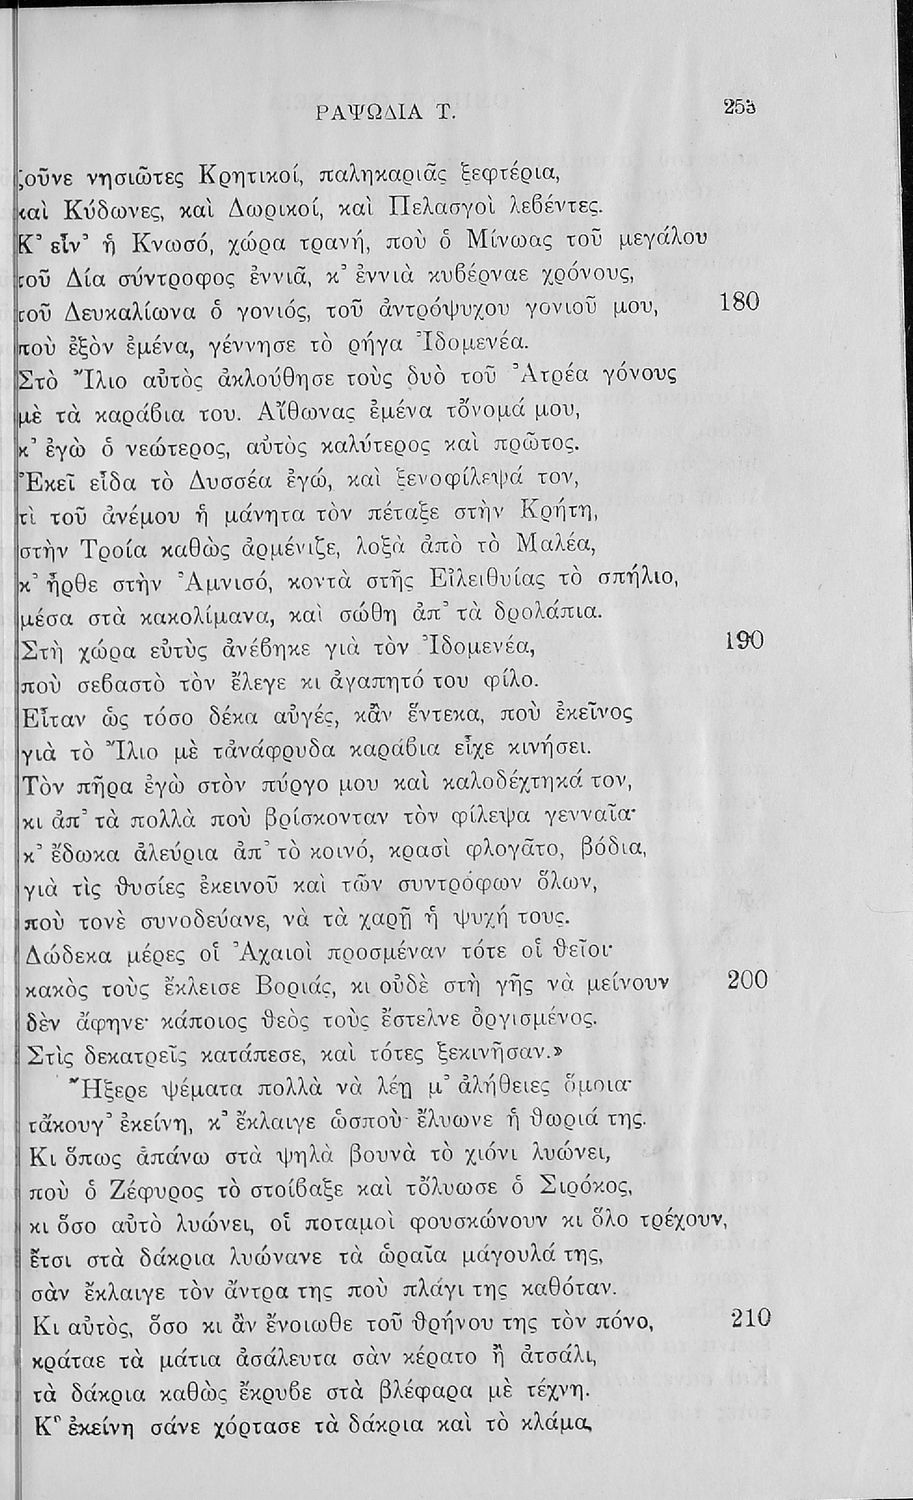 ΡΑΨΩΔΙΑ Τ. 253
ζοῦνε νησιῶτες Κρητικοί, παληκαριᾶς ξεφτέρια,
καὶ Κύδωνες, καὶ Δωρικοί, καὶ Πελασγοὶ λεβέντες.
Κ᾿ εἶν᾿ ἡ Κνωσό, χώρα τρανή, ποὺ ὁ Μίνωας τοῦ μεγάλου
τοῦ Δία σύντροφος ἐννιᾶ, κ᾿ ἐννιὰ κυβέρναε χρόνους,
τοῦ Δευκαλίωνα ὁ γονιός, τοῦ ἀντρόψυχου γονιοῦ μου, 180
ποὺ ἐξὸν ἐμένα, γέννησε τὸ ρήγα Ἰδομενέα.
Στὸ Ἴλιο αὐτὸς ἀκλούθησε τοὺς δυὸ τοῦ Ἀτρέα γόνους
μὲ τὰ καράβια του. Αἴθωνας ἐμένα τὄνομά μου,
κ᾿ ἐγὼ ὁ νεώτερος, αὐτὸς καλύτερος καὶ πρῶτος.
Ἐκεῖ εἶδα τὸ Δυσσέα ἐγώ, καὶ ξενοφίλεψά τον,
τὶ τοῦ ἀνέμου ἡ μάνητα τὸν πέταξε στὴν Κρήτη,
στὴν Τροία καθὼς ἀρμένιζε, λοξὰ ἀπὸ τὸ Μαλέα,
κ᾿ ἦρθε στὴν Ἀμνισό, κοντὰ στῆς Εἰλειθυίας τὸ σπήλιο,
μέσα στὰ κακολίμανα, καὶ σώθη ἀπ᾿ τὰ δρολάπια.
Στὴ χώρα εὐτὺς ἀνέβηκε γιὰ τὸν Ἰδομενέα, 190
ποὺ σεβαστὸ τὸν ἔλεγε κι ἀγαπητό του φίλο.
Εἶταν ὡς τόσο δέκα αὐγές, κἂν ἕντεκα, ποὺ ἐκεῖνος
γιὰ τὸ Ἴλιο μὲ τἀνάφρυδα καράβια εἶχε κινήσει.
Τὸν πῆρα ἐγὼ στὸν πύργο μου καὶ καλοδέχτηκά τον,
κι ἀπ᾿ τὰ πολλὰ ποὺ βρίσκονταν τὸν φίλεψα γενναῖα·
κ᾿ ἔδωκα ἀλεύρια ἀπ᾿ τὸ κοινό, κρασὶ φλογᾶτο, βόδια,
γιὰ τὶς θυσίες ἐκεινοῦ καὶ τῶν συντρόφων ὅλων,
ποὺ τονὲ συνοδεύανε, νὰ τὰ χαρῇ ἡ ψυχή τους.
Δώδεκα μέρες οἱ Ἀχαιοὶ προσμέναν τότε οἱ θεῖοι·
κακὸς τοὺς ἔκλεισε Βοριάς, κι οὐδὲ στὴ γῆς νὰ μείνουν 200
δὲν ἄφηνε· κάποιος θεὸς τοὺς ἔστελνε ὀργισμένος.
Στὶς δεκατρεῖς κατάπεσε, καὶ τότες ξεκινῆσαν.»
Ἤξερε ψέματα πολλὰ νὰ λέῃ μ᾿ ἀλήθειες ὅμοια·
τἄκουγ᾿ ἐκείνη, κ᾿ ἔκλαιγε ὡσποὺ ἔλυωνε ἡ θωριά της.
Κι ὅπως ἀπάνω στὰ ψηλὰ βουνὰ τὸ χιόνι λυώνει,
ποὺ ὁ Ζέφυρος τὸ στοίβαξε καὶ τὄλυωσε ὁ Σιρόκος,
κι ὅσο αὐτὸ λυώνει, οἱ ποταμοὶ φουσκώνουν κι ὅλο τρέχουν,
ἔτσι στὰ δάκρια λυώνανε τὰ ὡραῖα μάγουλά της,
σὰν ἔκλαιγε τὸν ἄντρα της ποὺ πλάγι της καθόταν.
Κι αὐτὸς, ὅσο κι ἂν ἔνοιωθε τοῦ θρήνου της τὸν πόνο, 210
κράταε τὰ μάτια ἀσάλευτα σὰν κέρατο ἢ ἀτσάλι,
τὰ δάκρια καθὼς ἔκρυβε στὰ βλέφαρα μὲ τέχνη.
Κ᾿ ἐκείνη σάνε χόρτασε τὰ δάκρια καὶ τὸ κλάμα,